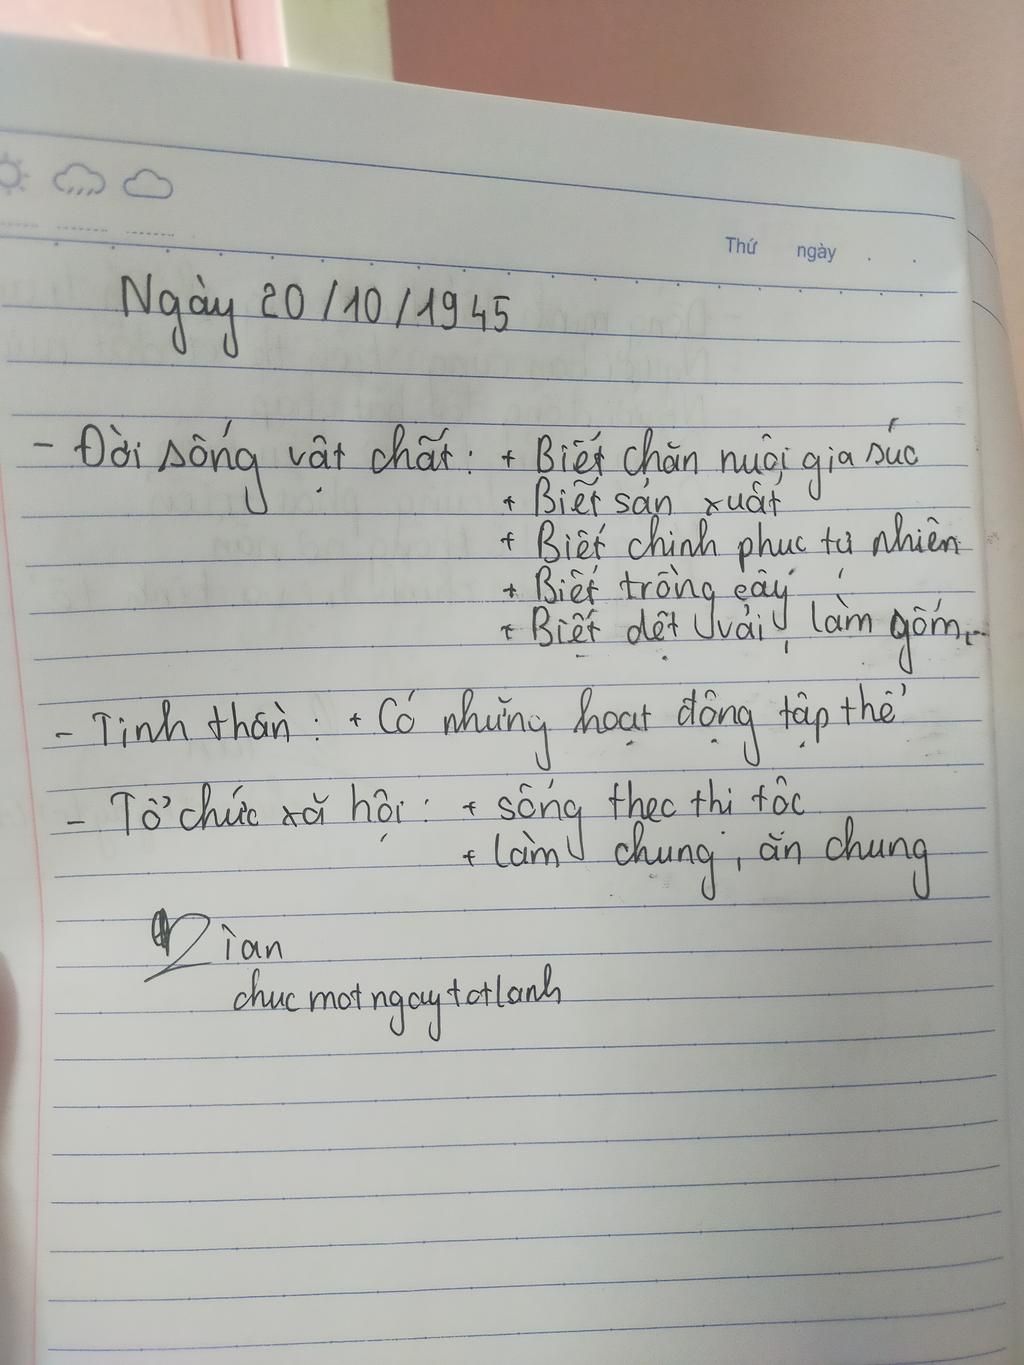 Thứ ngày
Ngày 20/10/1945
- Đời sống vật chất: + Biết chăn nuôi gia súc
+ Biết sản xuất
+ Biết chinh phục tự nhiên
+ Biết trồng cây
+ Biết dệt vải, làm gốm,...
- Tinh thần: + Có những hoạt động tập thể
- Tổ chức xã hội: + sống theo thị tộc
+ làm chung, ăn chung
chuc mot ngay tot lanh